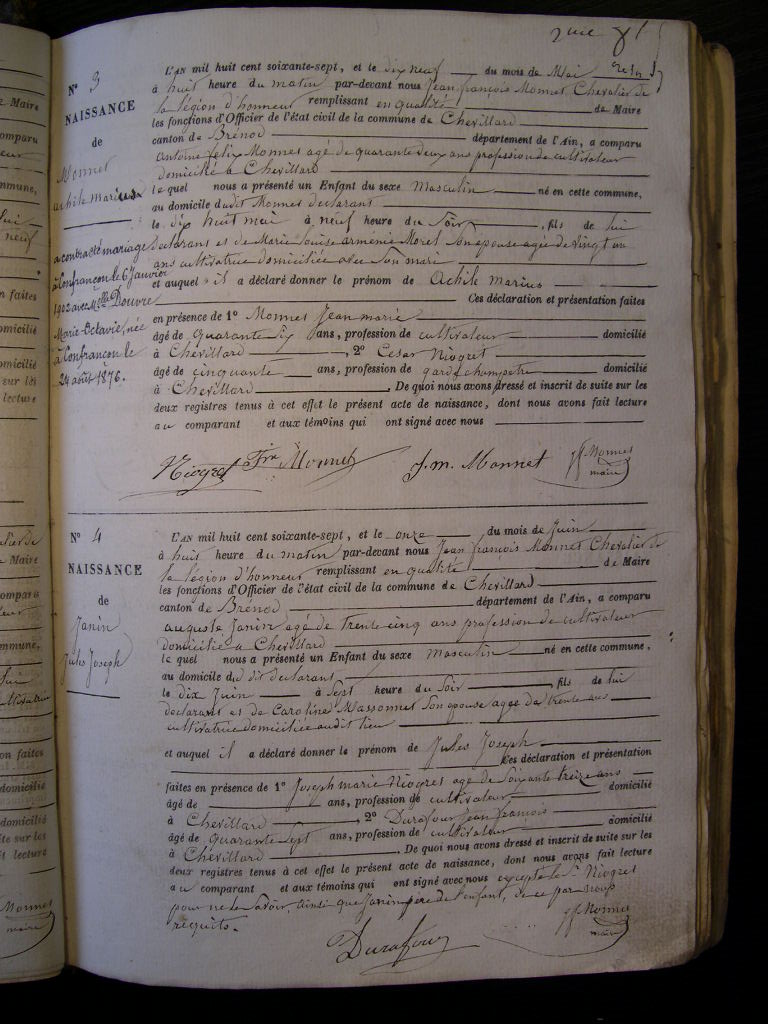 L'AN mil huit cent soixante-sept, et le dix neuf du mois de Mai
à huit heure du matin par-devant nous Jean françois Monnet Chevalier de
la légion d'honneur remplissant en qualité de Maire
les fonctions d'Officier de l'état civil de la commune de Chevillard
canton de Brénod département de l'Ain, a comparu
antoine felix Monnet agé de quarante deux ans profession de cultivateur
domicilié a Chevillard
le quel nous a présenté un Enfant du sexe Masculin né en cette commune,
au domicile dudit Monnet declarant
le dix huit mai à neuf heure du Soir, fils de lui
declarant et de Marie Louise arménie Morel Son epouse agée de vingt un
ans cultivatrice domiciliée avec Son mari
et auquel il a déclaré donner le prénom de Achile marius
Ces déclaration et présentation faites
en présence de 1° Monnet Jean marie
âgé de quarante Six ans, profession de cultivateur domicilié
à Chevillard, 2° Cesar Niogret
âgé de cinquante ans, profession de garde champetre domicilié
à Chevillard. De quoi nous avons dressé et inscrit de suite sur les
deux registres tenus à cet effet le présent acte de naissance, dont nous avons fait lecture
au comparant et aux témoins qui ont signé avec nous
Niogret Monnet J. m. Monnet Monnet
maire
N° 3
NAISSANCE
de
Monnet
achile marius
a contracté mariage
à Confrançon le 6 Janvier
1902 avec Mlle Douvre
Marie-Octavie, née
à Confrançon le
24 août 1876.
N° 4
NAISSANCE
de
Janin
Jules Joseph
L'AN mil huit cent soixante-sept, et le onze du mois de Juin
à huit heure du matin par-devant nous Jean françois Monnet Chevalier de
la légion d'honneur remplissant en qualité de Maire
les fonctions d'Officier de l'état civil de la commune de Chevillard
canton de Brénod département de l'Ain, a comparu
auguste Janin agé de trente cinq ans profession de cultivateur
domicilié a Chevillard
le quel nous a présenté un Enfant du sexe Masculin né en cette commune,
au domicile du dit declarant
le dix Juin à Sept heure du Soir, fils de lui
declarant et de Caroline Massonnet Son epouse agée de trente ans
cultivatrice domiciliée audit lieu
et auquel il a déclaré donner le prénom de Jules Joseph
Ces déclaration et présentation
faites en présence de 1° Joseph marie Niogret agé de Soixante treize ans
âgé de ans, profession de cultivateur domicilié
à Chevillard, 2° Durafour Jean françois
âgé de quarante Sept ans, profession de cultivateur domicilié
à Chevillard. De quoi nous avons dressé et inscrit de suite sur les
deux registres tenus à cet effet le présent acte de naissance, dont nous avons fait lecture
au comparant et aux témoins qui ont signé avec nous excepté le Sr Niogret
pour ne le Savoir, ainsi que Janin père de l'enfant, de ce par nous
requits.
Durafour Monnet
maire